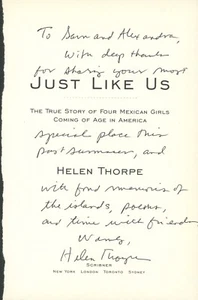 To Sam and Alexandra,
With deep thanks
for sharing your most
JUST LIKE US
THE TRUE STORY OF FOUR MEXICAN GIRLS
COMING OF AGE IN AMERICA
special place this
past summer, and
HELEN THORPE
with fond memories of
the islands, poems,
and time with friends
Helen Thorpe
SCRIBNER
NEW YORK LONDON TORONTO SYDNEY